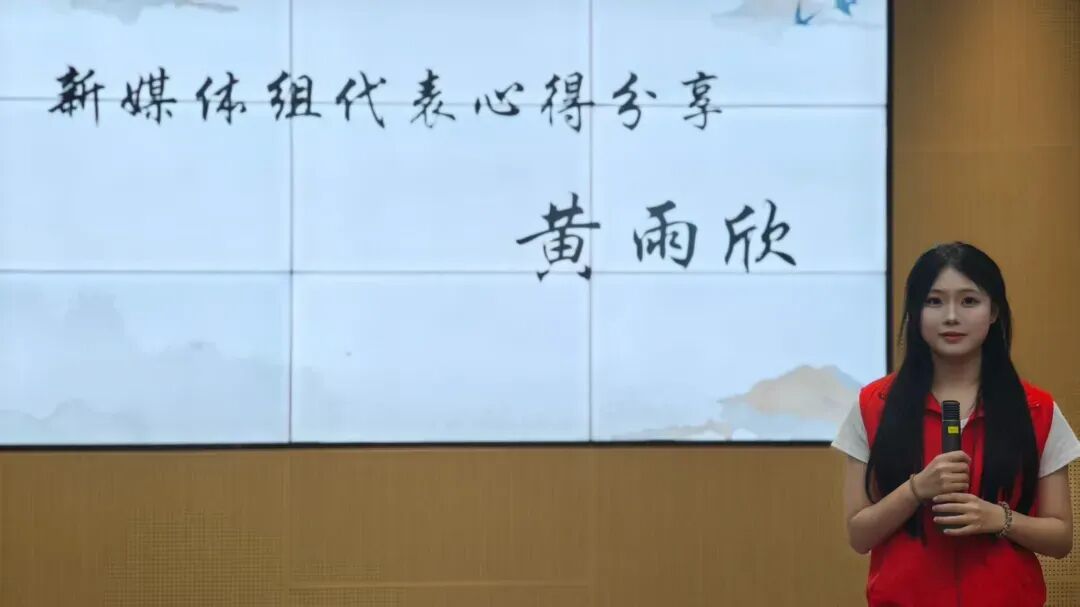 新媒体组代表心得分享
黄雨欣